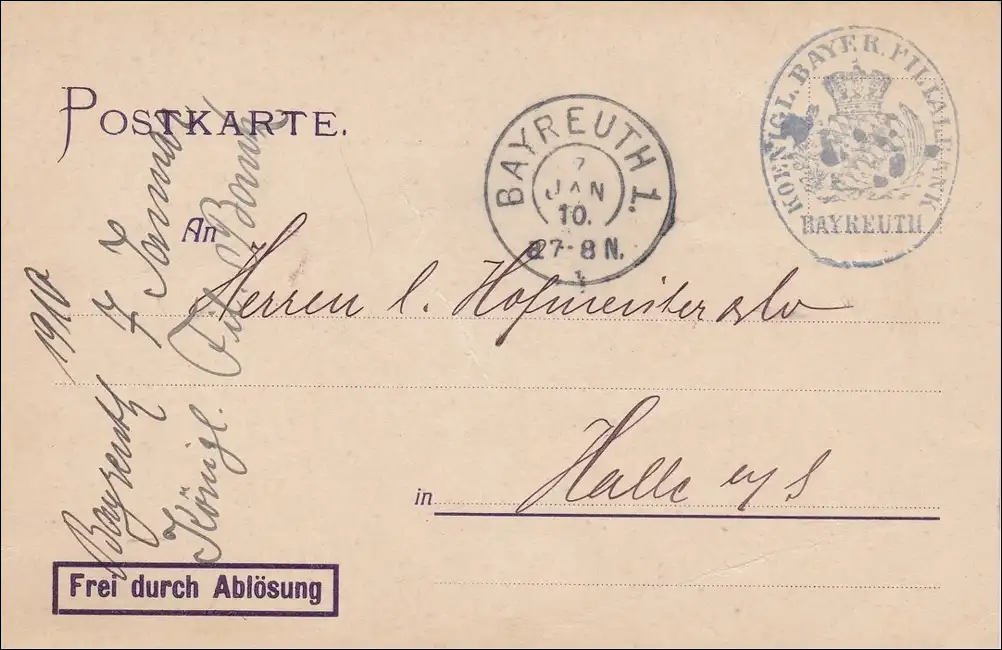 POSTKARTE.
KOENIGL. BAYER. FILIALBANK
BAYREUTH
BAYREUTH 1.
7
JAN
10.
7-8 N.
An
Herren C. Hofmeister
Halle a/S
in
Bayreuth 7 Januar 1910
Königl. Fil. Bank
Frei durch Ablösung